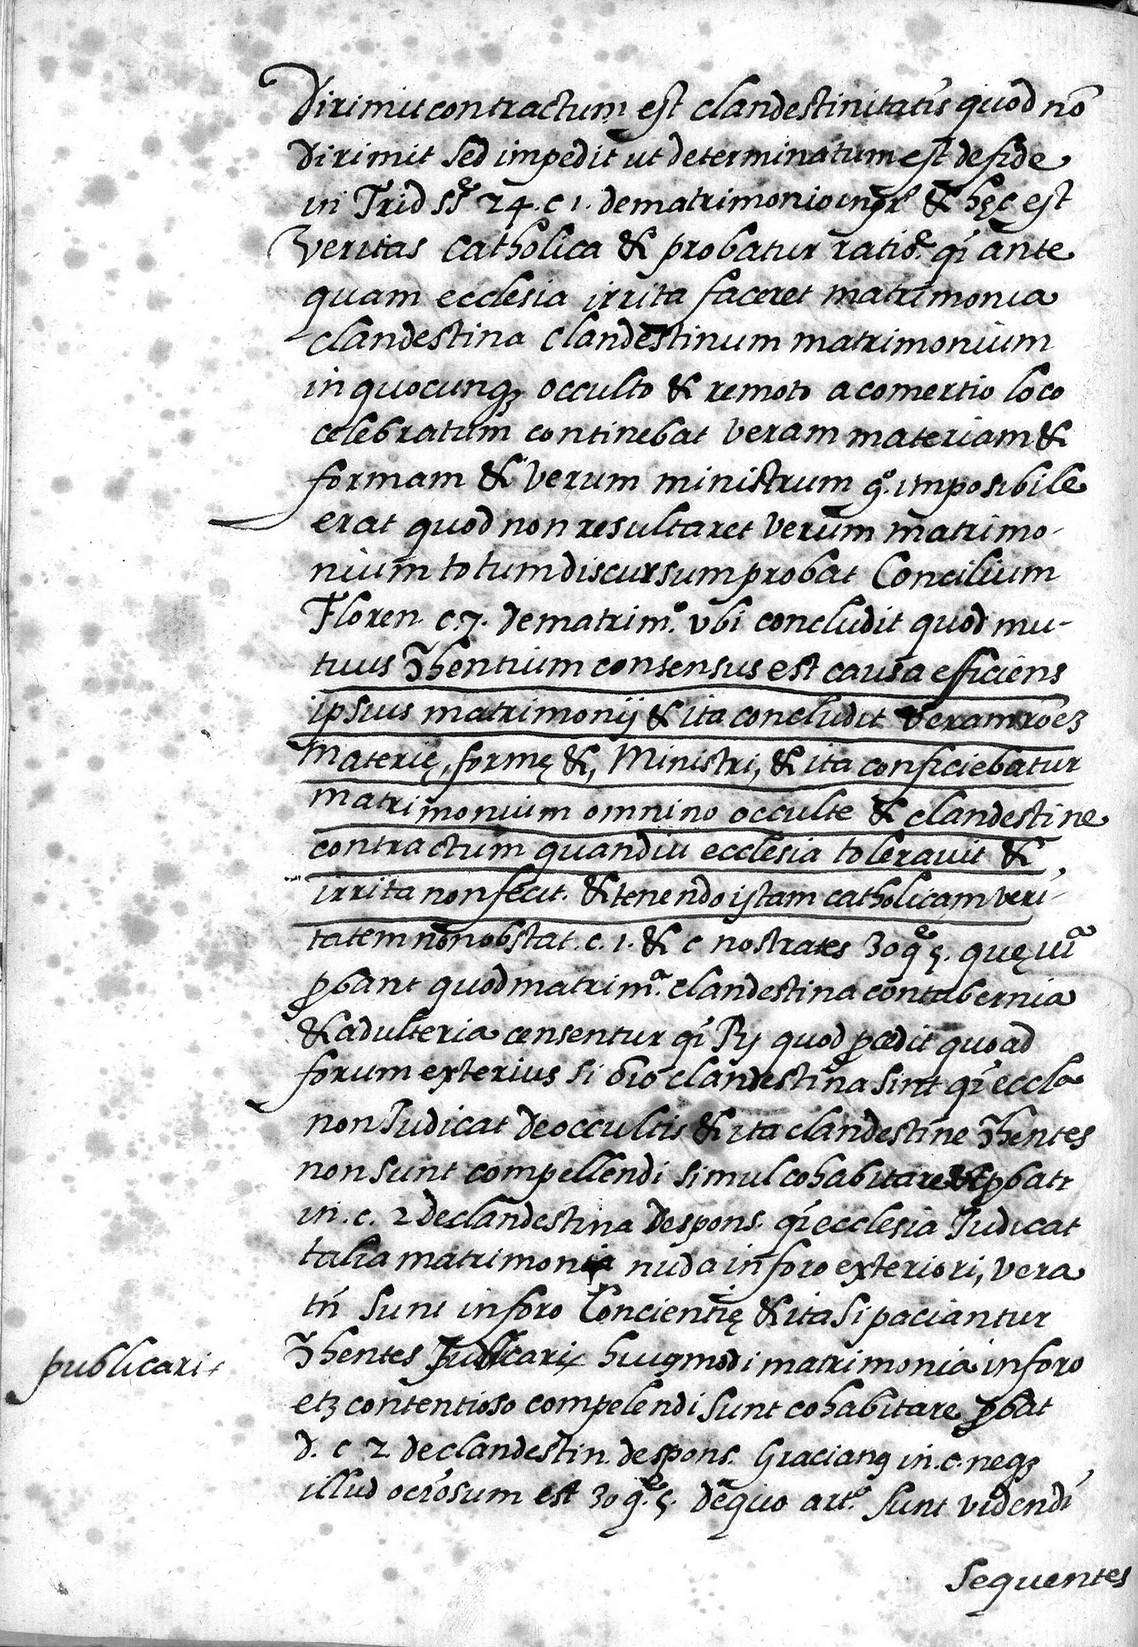 Dirimit contractum est clandestinitatis quod nõ
dirimit sed impedit ut determinatum est de fide
in Trid ss.ᵉ 24. c 1. de matrimonio & hęc est
veritas catholica & probatur ratiõᵉ. qi ante
quam ecclesia irrita faceret matrimonia
clandestina clandestinum matrimonium
in quocunqȝ occulto & remoto a comertio loco
celebratum continebat veram materiam &
formam & verum ministrum g.º imposibile
erat quod non resultaret verum matrimo-
nium totum discursum probat Concilium
Floren. c. 7. de matrim.º vbi concludit quod mu-
tuus Jhentium consensus est causa efficiens
ipsius matrimonij & ita concludit veram rõeȝ
Materię, formę &, Ministri, & ita conficiebatur
matrimonium omnino occulte & clandestine
contractum quandiu ecclesia toleravit &
irrita non fecit. & tenendo istam catholicam veri-
tatem non obstat. c. 1. & c nostrates 30 q.ᵉ 5. quę
ꝓbant quod matrim.ª clandestina contubernia
& adulteria censentur qi quod ꝓcedit quoad
forum exterius si oĩo clandestina sint qi eccleª
non Judicat de occultis & ita clandestine Jhentes
non sunt compellendi simul cohabitare & ꝓbatr
in. c. 2 de clandestina despons. qi ecclesia Judicat
talia matrimonia nuda in foro exteriori, vera
tñ sunt in foro Concientię & ita si paciantur
publicari Jhentes publicari huiqmodi matrimonia in foro
etȝ contentioso compelendi sunt cohabitare ꝓbat
d. c 2 de clandestin. despons. Gracianq in. c. neqȝ
illud ociosum est 30 q.ᵉ 5. de quo art.º sunt videndi
sequentes